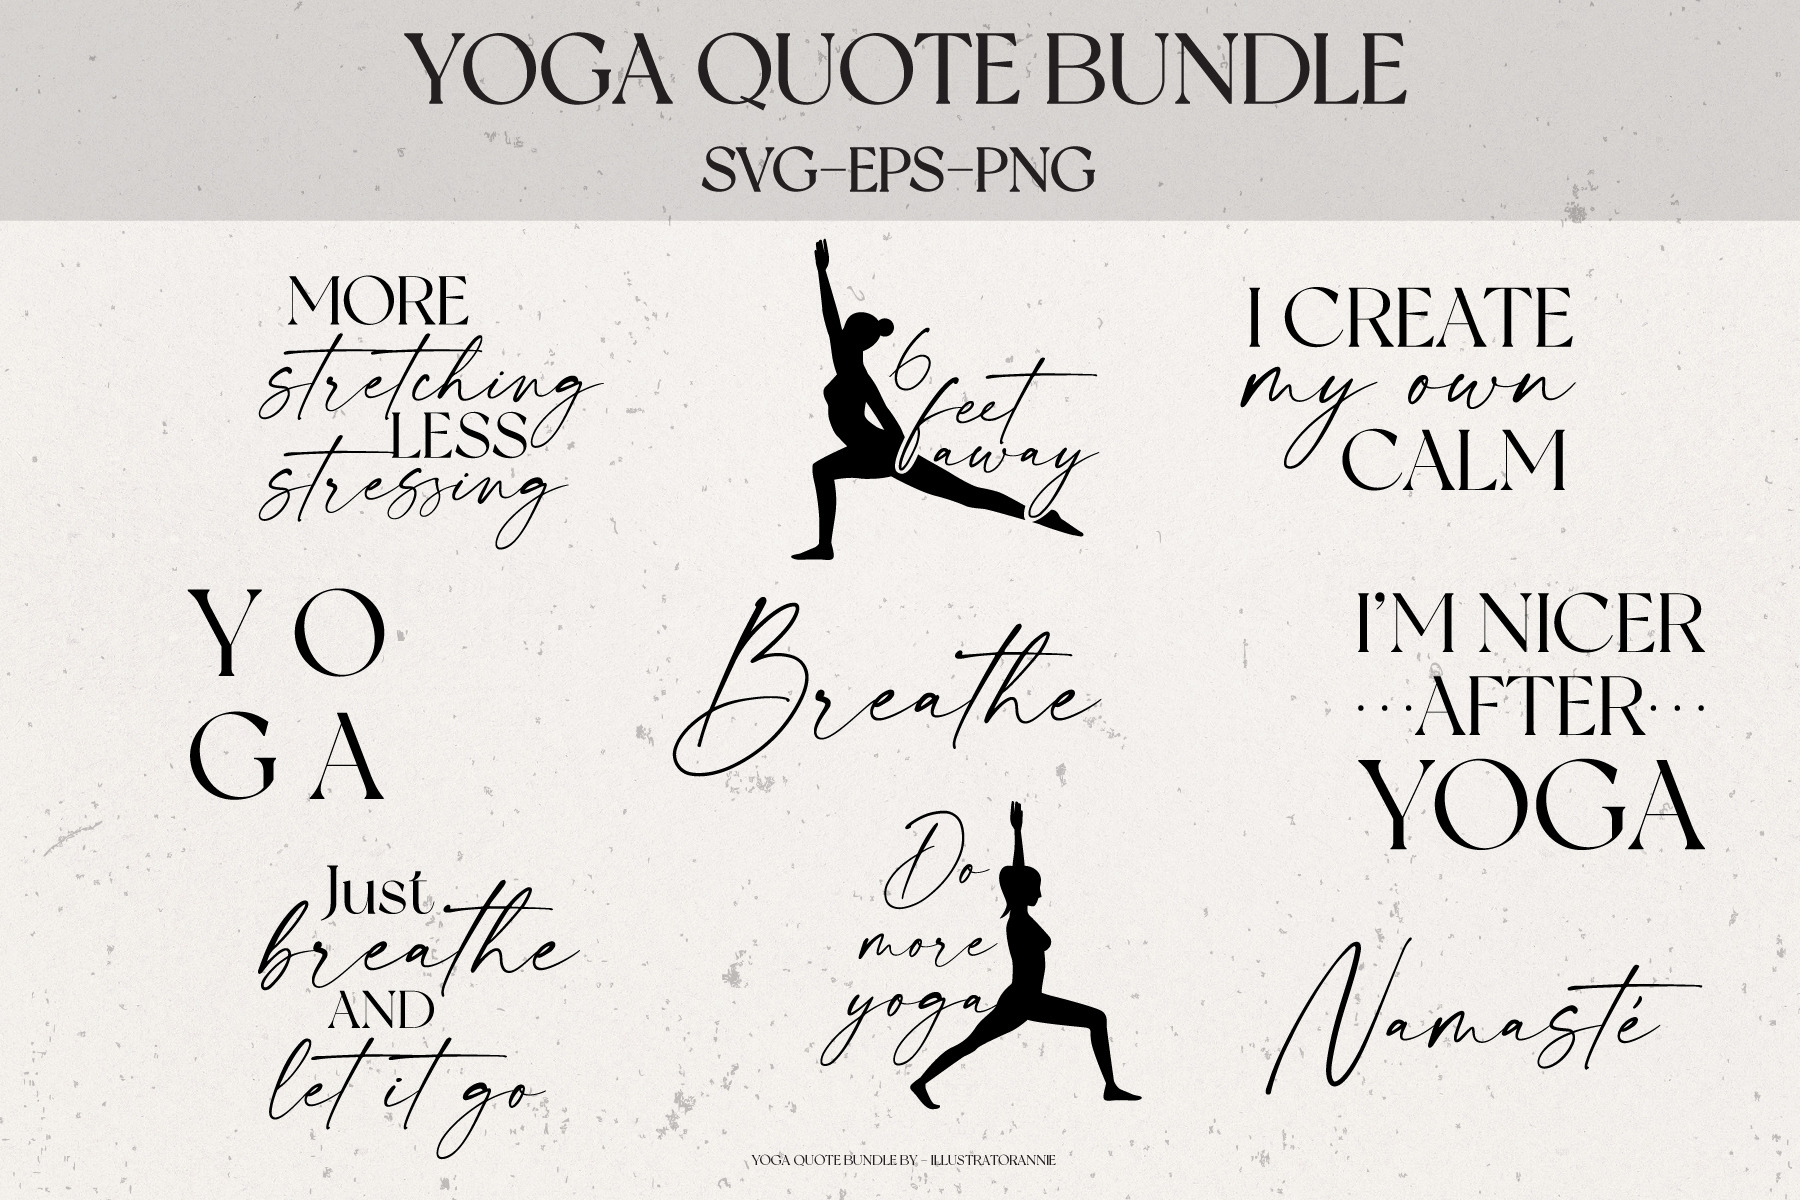 YOGA QUOTE BUNDLE
SVG-EPS-PNG
MORE
stretching
LESS
stressing
6
feet
away
I CREATE
my own
CALM
Y O
G A
Breathe
I'M NICER
···AFTER···
YOGA
Just
breathe
AND
let it go
Do
more
yoga
Namasté
YOGA QUOTE BUNDLE BY - ILLUSTRATORANNIE